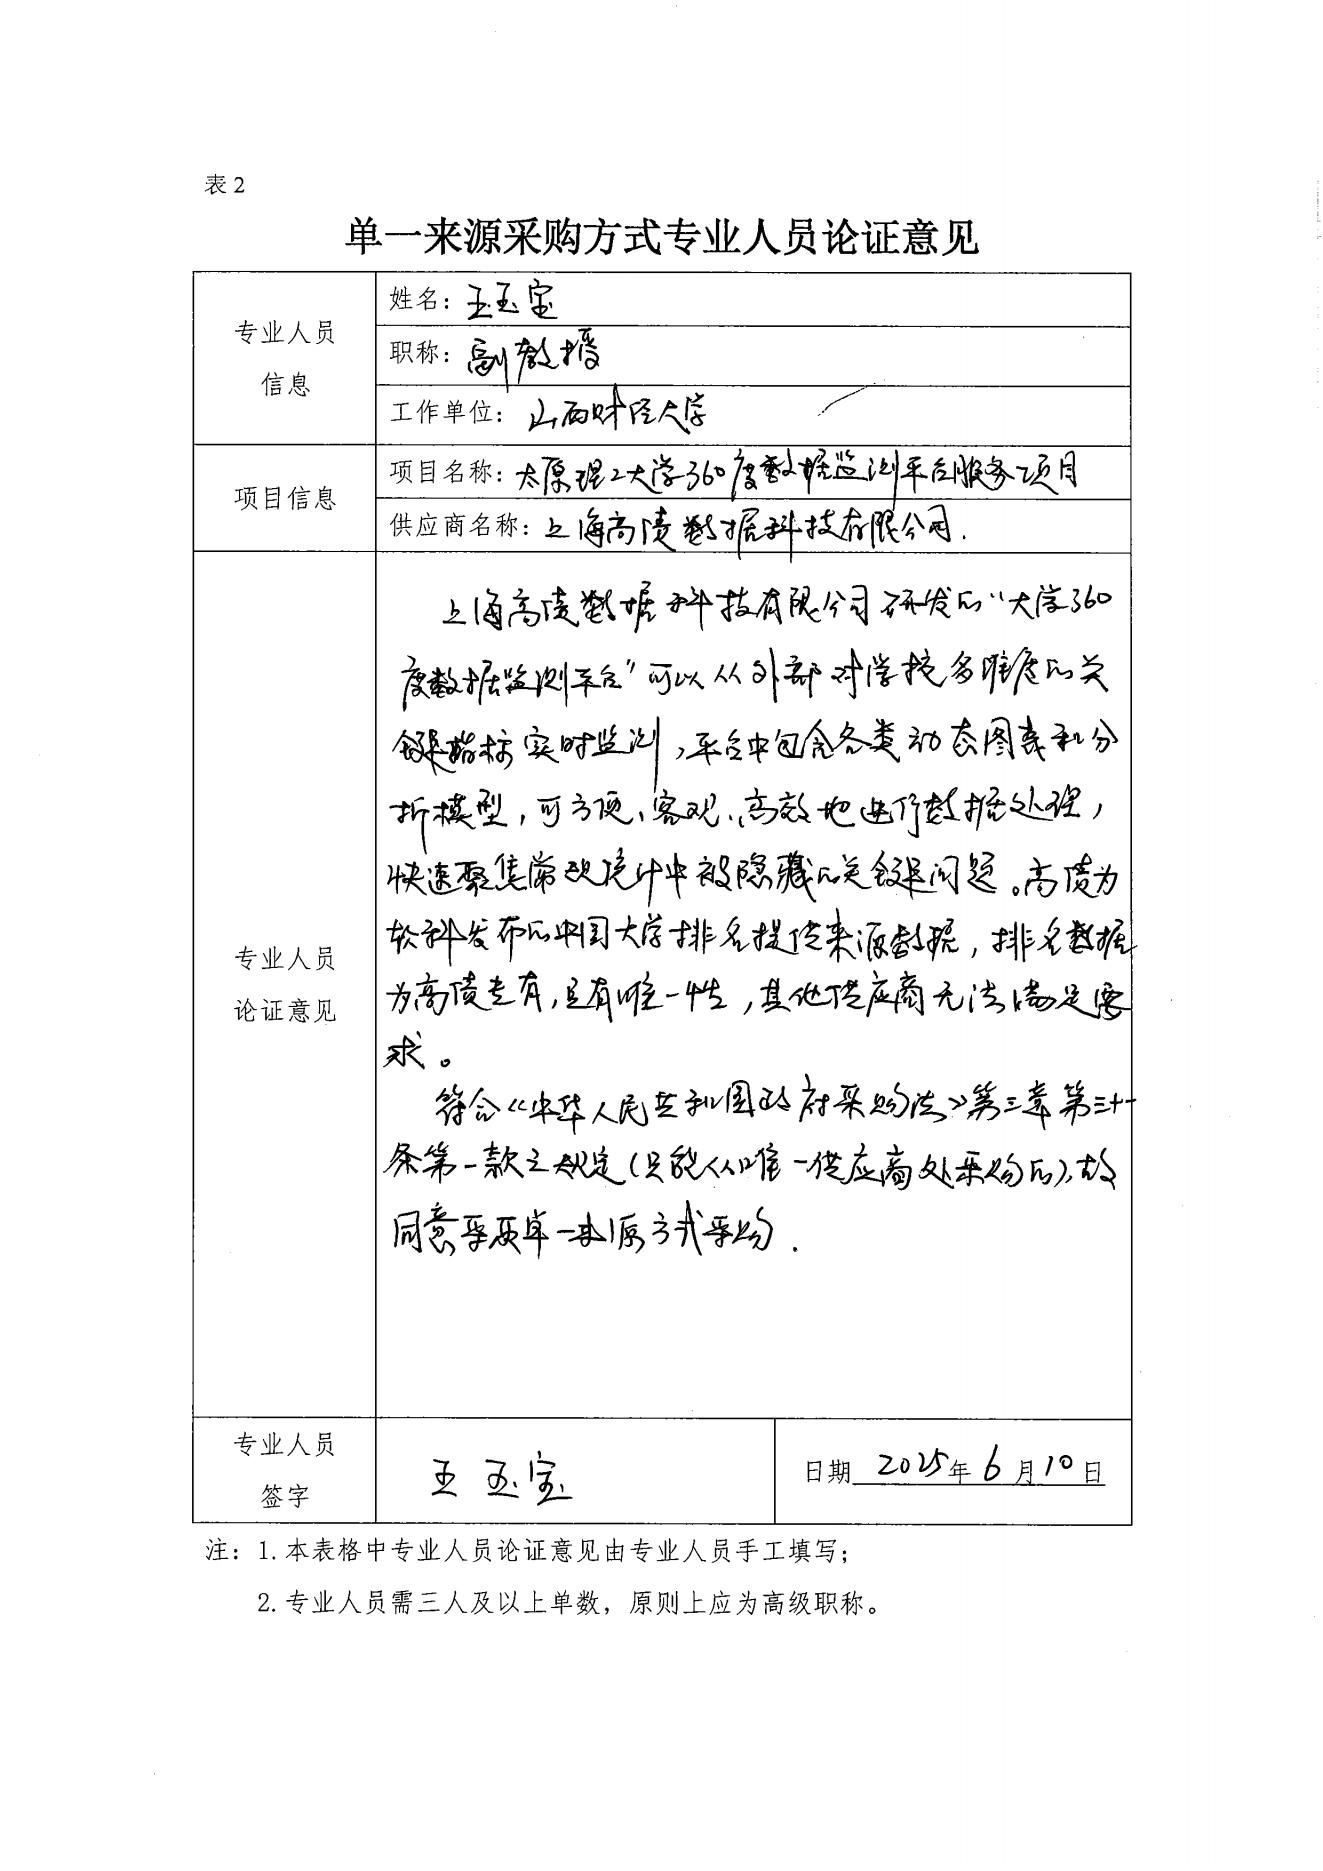 表2
单一来源采购方式专业人员论证意见
专业人员
信息
姓名：王玉宝
职称：副教授
工作单位：山西财经大学
项目信息
项目名称：太原理工大学360度数据监测平台服务项目
供应商名称：上海高绩数据科技有限公司.
专业人员
论证意见
上海高绩数据科技有限公司研发的“大学360
度数据监测平台”可以从外部对学校多维度的关
键指标实时监测,平台中包含各类动态图表和分
析模型,可方便、客观、高效地进行数据处理,
快速聚焦常规统计中被隐藏的关键问题。高绩为
软科发布的中国大学排名提供来源数据,排名数据
为高绩专有,具有唯一性,其他供应商无法满足要
求。
符合《中华人民共和国政府采购法》第三章第三十一
条第一款之规定(只能从唯一供应商处采购的),故
同意采取单一来源方式采购.
专业人员
签字
王玉宝
日期 2025年6月10日
注：1.本表格中专业人员论证意见由专业人员手工填写；
2.专业人员需三人及以上单数，原则上应为高级职称。